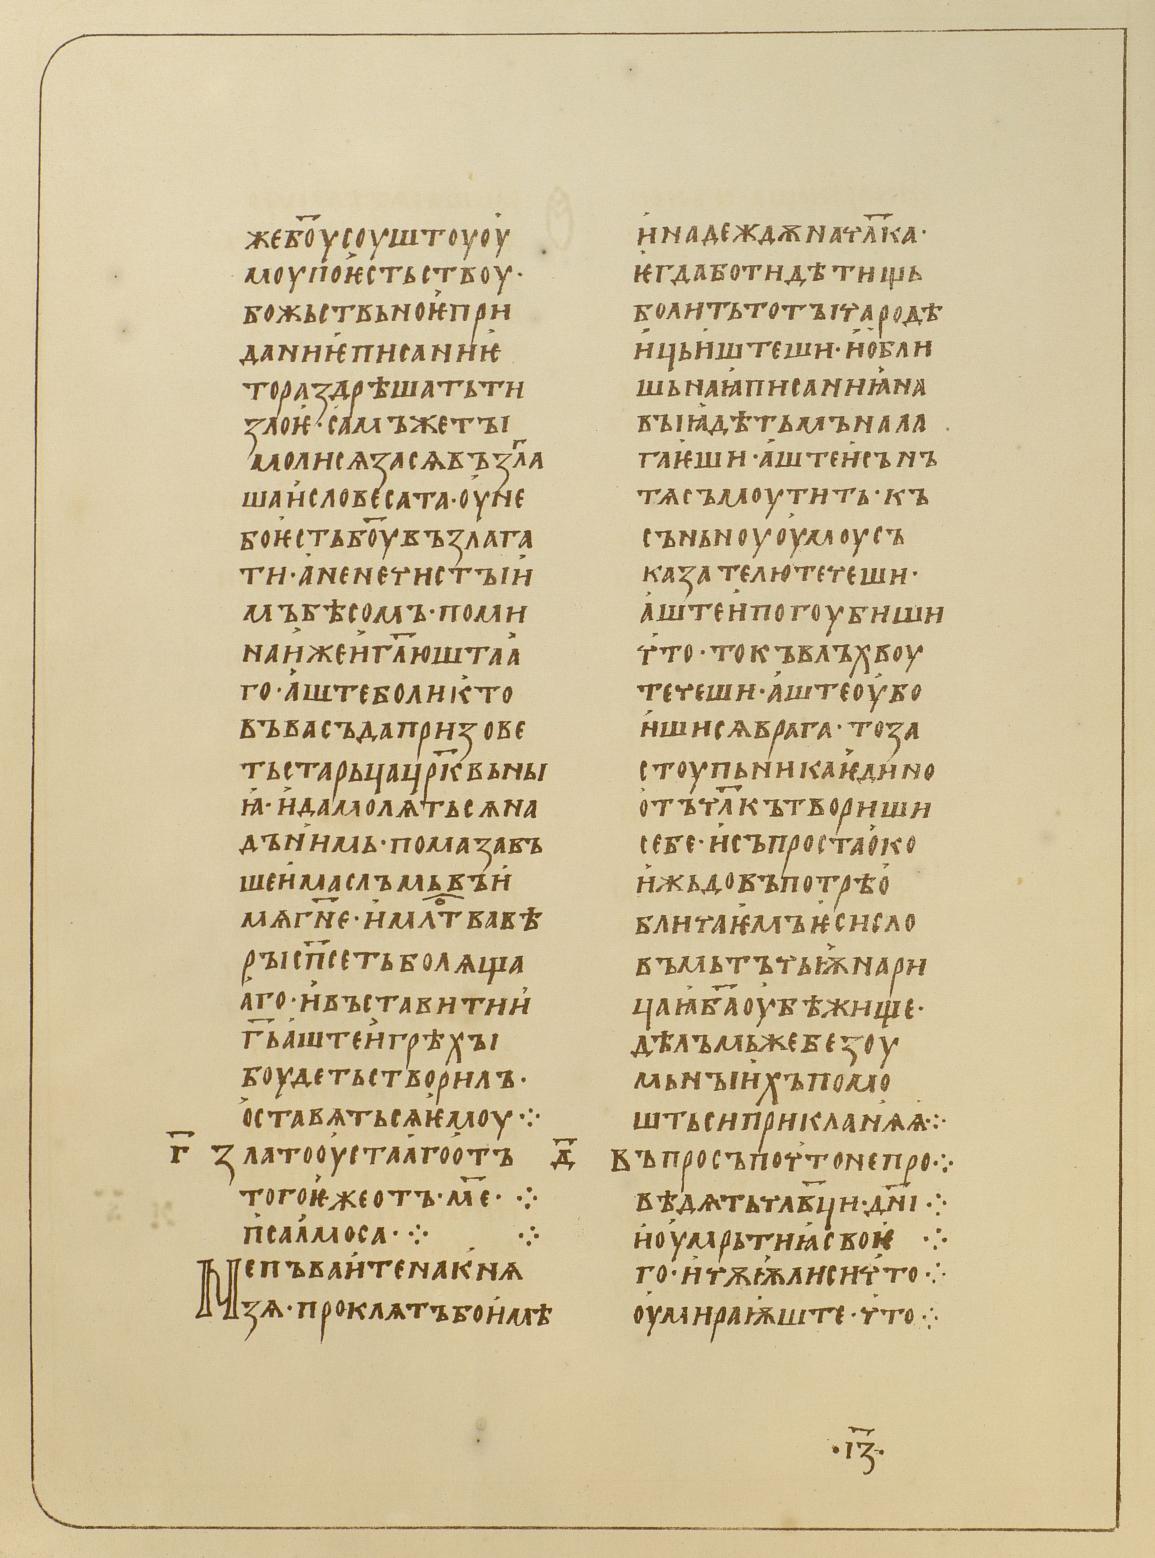 жебо҃усоуштоуоу
моупоѥстьствоу·
божьствьноѥпри
даниѥписаниѥ
торазⷣрѣшатьти
злоѥ·самъжеты
молисѧзасѧвъзл҃а
шаисловесата·оуне
боѥстьбо҃увъзлага
ти·аненеѵистыи
мъбѣсомъ·поми
наижеигл҃юштаа
го·аштеболикто
въвасъдапризове
тьстарьцацр҃квьны
ꙗ·идамолѧтьсѧна
дънимь·помазавъ
шеимасльмьвъи
мѧгн҃е·имл҃твавѣ
рысп҃сетьболѧща
аго·ивъставитии
г҃ьаштеигрѣхы
боудетьстворилъ·
оставѧтьсѧѥмоу·:·
г҃ златооустаагоотъ
тогоѥжеотъ·м҃е· ·:·
псалмоса··:· ·:·
Непъваитенакнѧ
зѧ·проклѧтъбоимѣ
инадеждѫнаѵл҃ка·
ѥгдаботидѣтищь
болитьтотыѵародѣ
ицьиштеши·иобли
шьнаꙗписаниꙗна
выꙗдѣтьмънала
гаѥши·аштеисънъ
тѧсъмоутить·къ
съньноуоумоусъ
казателютеѵеши·
аштеипогоубиши
ѵто·токъвлъхвоу
теѵеши·аштеоубо
ишисѧврага·тоза
стоупьникаѥдино
отъѵл҃кътвориши
себе·исъпростаоко
ижьдовъпотрѣо
блиѵаѥмъѥсисло
въмьтъѵьѭнари
цаꙗб҃аоубѣжище·
дѣлъмьжебезоу
мьныихъпомо
штьсиприкланѧѧ·:·
д҃ Въпросъпоѵтонепро·:·
вѣдѧтьѵл҃вци·дн҃ı·:·
иоумрьтиꙗсвоѥ ·:·
го·иѵѫѭлисиѵто·:·
оумираѭште·ѵто·:·
·ı҃з·